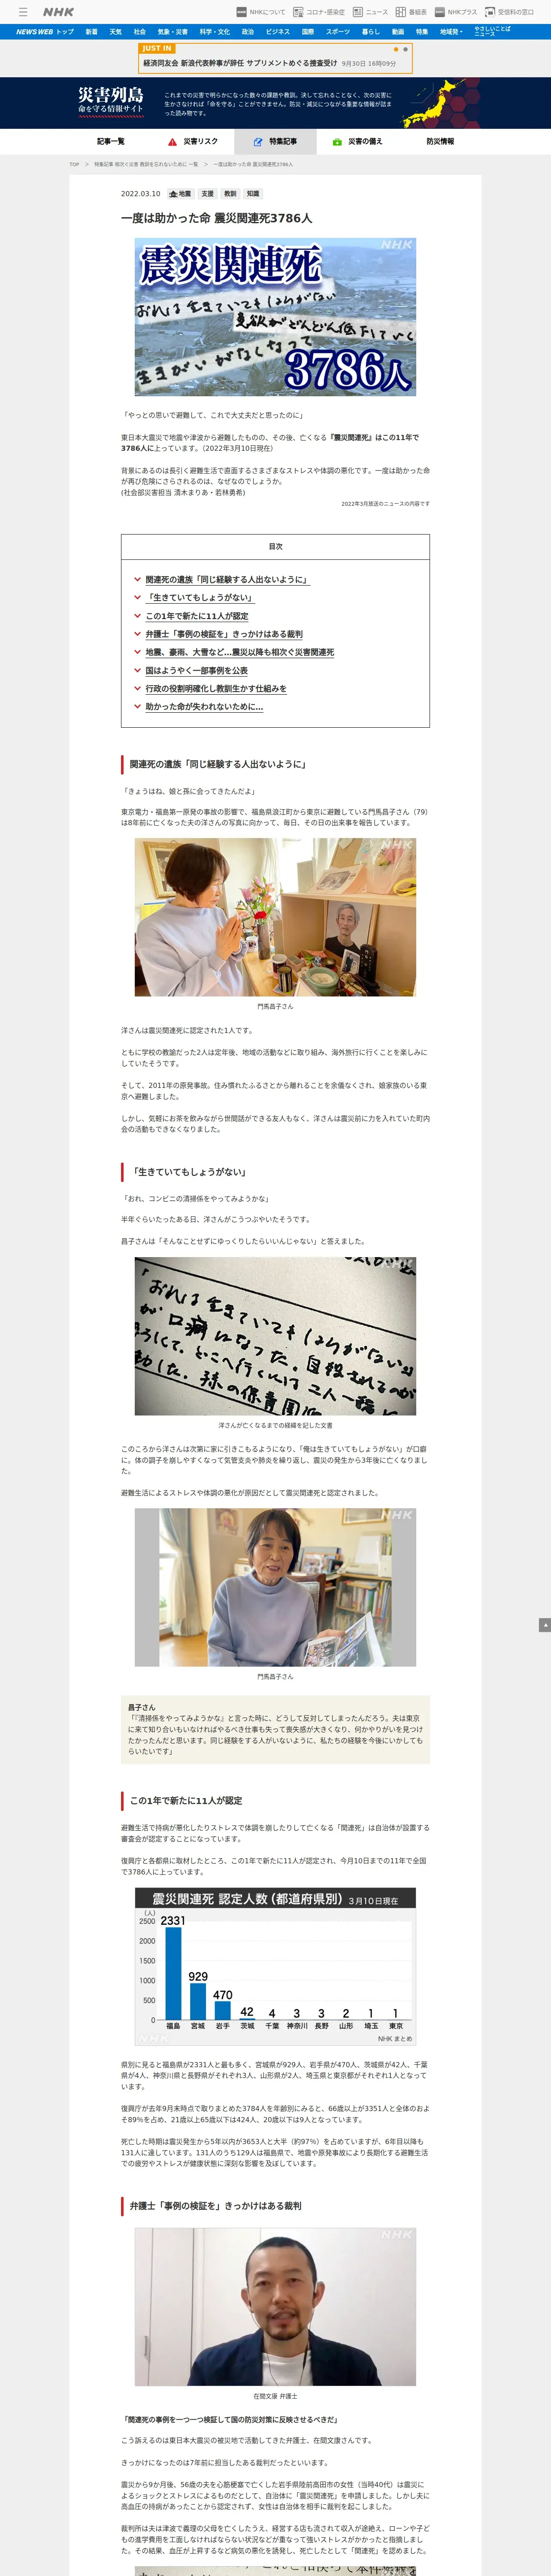 NHK
NHKについて
コロナ・感染症
ニュース
番組表
NHKプラス
受信料の窓口
NEWS WEB トップ 新着 天気 社会 気象・災害 科学・文化 政治 ビジネス 国際 スポーツ 暮らし 動画 特集 地域発 やさしいことばニュース
JUST IN
経済同友会 新浪代表幹事が辞任 サプリメントめぐる捜査受け 9月30日 16時09分
災害列島
命を守る情報サイト
これまでの災害で明らかになった数々の課題や教訓。決して忘れることなく、次の災害に
生かさなければ「命を守る」ことができません。防災・減災につながる重要な情報が詰ま
った読み物です。
記事一覧 災害リスク 特集記事 災害の備え 防災情報
TOP > 特集記事 相次ぐ災害 教訓を忘れないために 一覧 > 一度は助かった命 震災関連死3786人
2022.03.10 地震 支援 教訓 知識
一度は助かった命 震災関連死3786人
NHK
震災関連死
3786人
「やっとの思いで避難して、これで大丈夫だと思ったのに」
東日本大震災で地震や津波から避難したものの、その後、亡くなる『震災関連死』はこの11年で
3786人に上っています。（2022年3月10日現在）
背景にあるのは長引く避難生活で直面するさまざまなストレスや体調の悪化です。一度は助かった命
が再び危険にさらされるのは、なぜなのでしょうか。
(社会部災害担当 清木まりあ・若林勇希)
2022年3月放送のニュースの内容です
目次
関連死の遺族「同じ経験する人出ないように」
「生きていてもしょうがない」
この1年で新たに11人が認定
弁護士「事例の検証を」きっかけはある裁判
地震、豪雨、大雪など…震災以降も相次ぐ災害関連死
国はようやく一部事例を公表
行政の役割明確化し教訓生かす仕組みを
助かった命が失われないために…
関連死の遺族「同じ経験する人出ないように」
「きょうはね、娘と孫に会ってきたんだよ」
東京電力・福島第一原発の事故の影響で、福島県浪江町から東京に避難している門馬昌子さん（79）
は8年前に亡くなった夫の洋さんの写真に向かって、毎日、その日の出来事を報告しています。
NHK
門馬昌子さん
洋さんは震災関連死に認定された1人です。
ともに学校の教諭だった2人は定年後、地域の活動などに取り組み、海外旅行に行くことを楽しみに
していたそうです。
そして、2011年の原発事故。住み慣れたふるさとから離れることを余儀なくされ、娘家族のいる東
京へ避難しました。
しかし、気軽にお茶を飲みながら世間話ができる友人もなく、洋さんは震災前に力を入れていた町内
会の活動もできなくなりました。
「生きていてもしょうがない」
「おれ、コンビニの清掃係をやってみようかな」
半年ぐらいたったある日、洋さんがこうつぶやいたそうです。
昌子さんは「そんなことせずにゆっくりしたらいいんじゃない」と答えました。
洋さんが亡くなるまでの経緯を記した文書
このころから洋さんは次第に家に引きこもるようになり、「俺は生きていてもしょうがない」が口癖
に。体の調子を崩しやすくなって気管支炎や肺炎を繰り返し、震災の発生から3年後に亡くなりまし
た。
避難生活によるストレスや体調の悪化が原因だとして震災関連死と認定されました。
NHK
門馬昌子さん
昌子さん
「『清掃係をやってみようかな』と言った時に、どうして反対してしまったんだろう。夫は東京
に来て知り合いもいなければやるべき仕事も失って喪失感が大きくなり、何かやりがいを見つけ
たかったんだと思います。同じ経験をする人がいないように、私たちの経験を今後にいかしても
らいたいです」
この1年で新たに11人が認定
避難生活で持病が悪化したりストレスで体調を崩したりして亡くなる「関連死」は自治体が設置する
審査会が認定することになっています。
復興庁と各都県に取材したところ、この1年で新たに11人が認定され、今月10日までの11年で全国
で3786人に上っています。
震災関連死 認定人数（都道府県別） 3月10日現在
（人）
2500
2000
1500
1000
500
0
2331 929 470 42 4 3 3 2 1 1
福島 宮城 岩手 茨城 千葉 神奈川 長野 山形 埼玉 東京
NHK
NHK まとめ
県別に見ると福島県が2331人と最も多く、宮城県が929人、岩手県が470人、茨城県が42人、千葉
県が4人、神奈川県と長野県がそれぞれ3人、山形県が2人、埼玉県と東京都がそれぞれ1人となって
います。
復興庁が去年9月末時点で取りまとめた3784人を年齢別にみると、66歳以上が3351人と全体のおよ
そ89%を占め、21歳以上65歳以下は424人、20歳以下は9人となっています。
死亡した時期は震災発生から5年以内が3653人と大半（約97%）を占めていますが、6年目以降も
131人に達しています。131人のうち129人は福島県で、地震や原発事故により長期化する避難生活
での疲労やストレスが健康状態に深刻な影響を及ぼしています。
弁護士「事例の検証を」きっかけはある裁判
NHK
在間文康 弁護士
「関連死の事例を一つ一つ検証して国の防災対策に反映させるべきだ」
こう訴えるのは東日本大震災の被災地で活動してきた弁護士、在間文康さんです。
きっかけになったのは7年前に担当したある裁判だったといいます。
震災から9か月後、56歳の夫を心筋梗塞で亡くした岩手県陸前高田市の女性（当時40代）は震災に
よるショックとストレスによるものだとして、自治体に「震災関連死」を申請しました。しかし夫に
高血圧の持病があったことから認定されず、女性は自治体を相手に裁判を起こしました。
裁判所は夫は津波で義理の父母を亡くしたうえ、経営する店も流されて収入が途絶え、ローンや子ど
もの進学費用を工面しなければならない状況などが重なって強いストレスがかかったと指摘しまし
た。その結果、血圧が上昇するなど病気の悪化を誘発し、死亡したとして「関連死」を認めました。